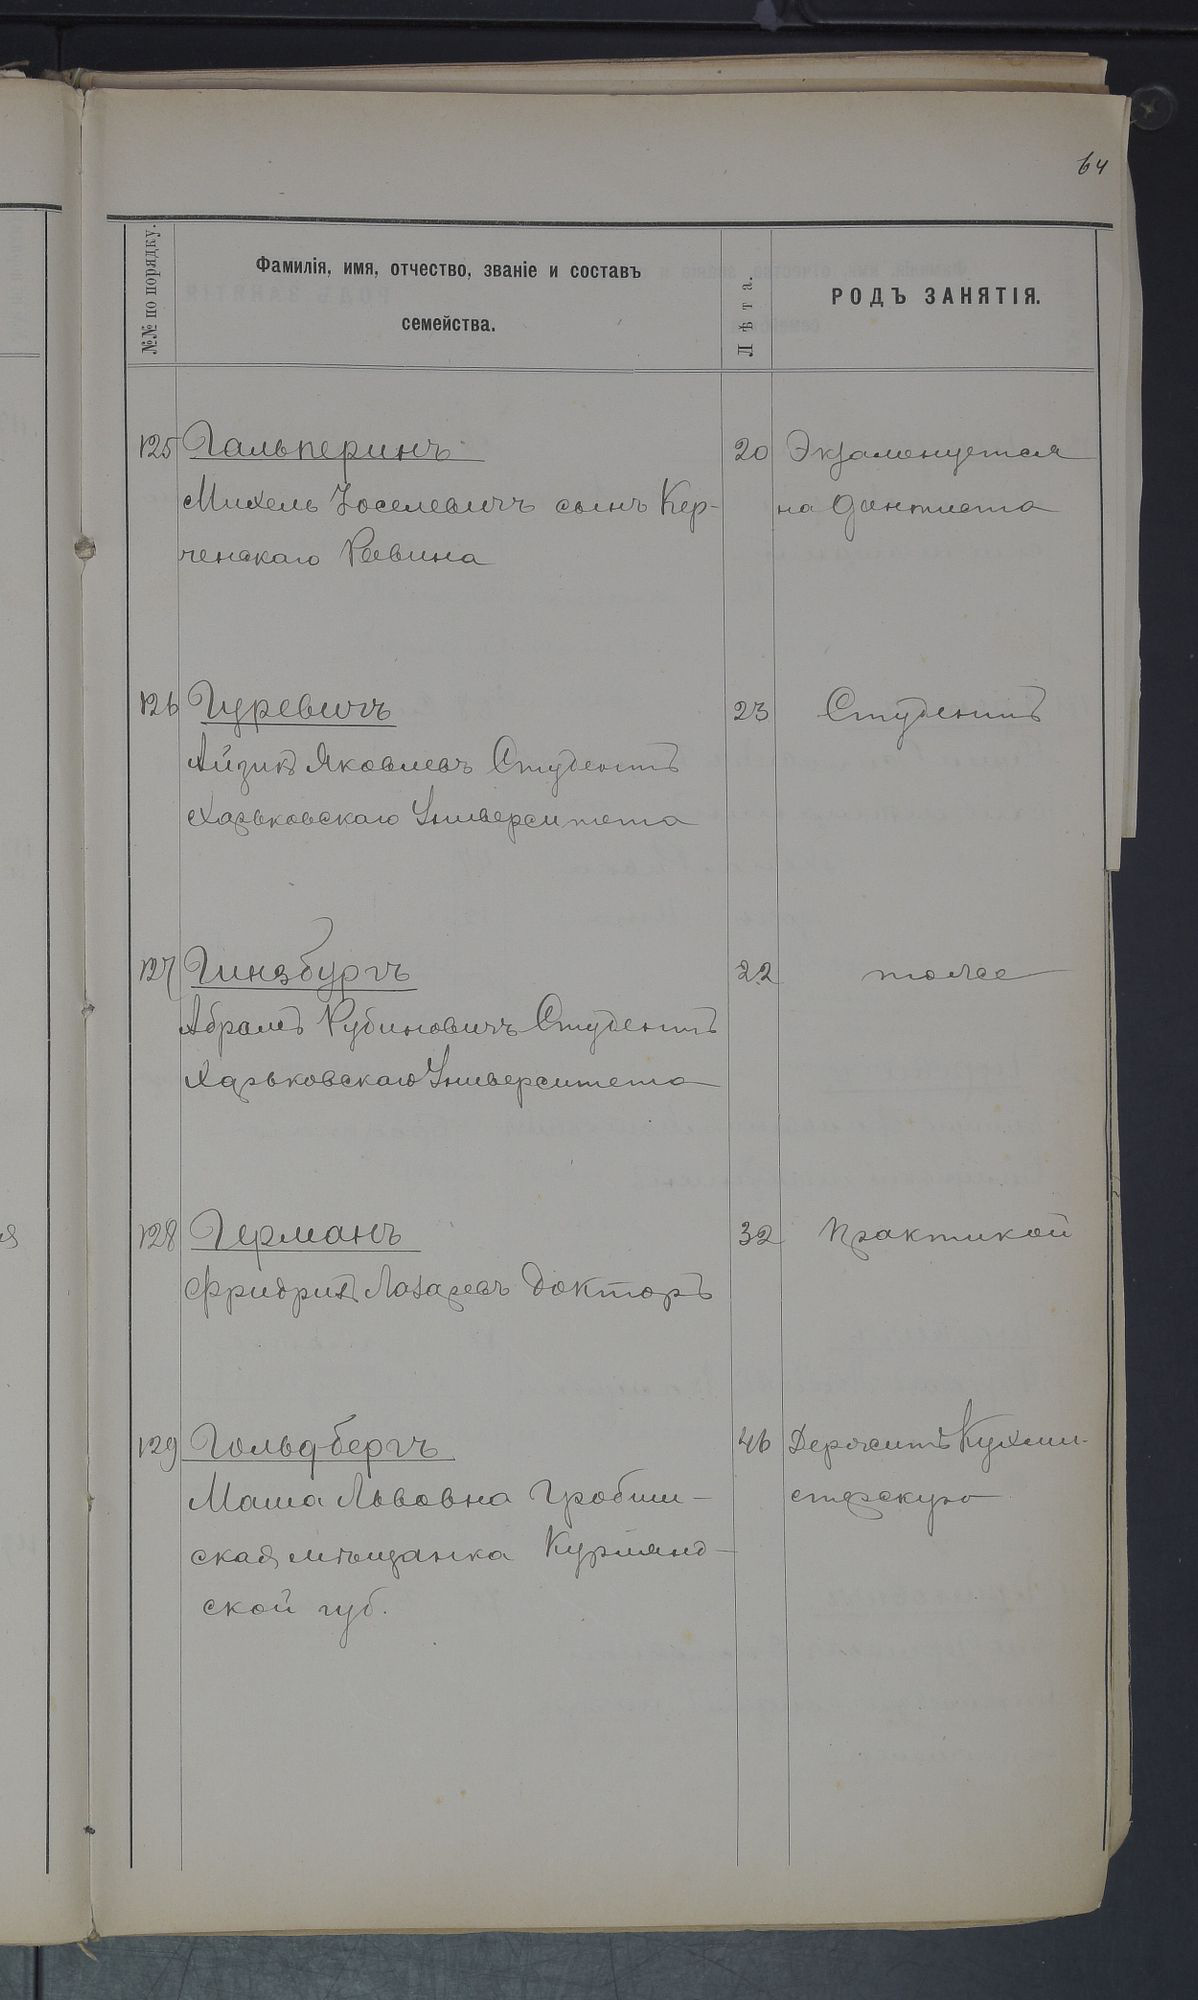 64
№№ по порядку.
Фамилія, имя, отчество, званіе и составъ
семейства.
Лѣта.
РОДЪ ЗАНЯТІЯ.
125 Гальперинъ 20 Экзаменуется
Михель Іоселевичъ сынъ Кер- на дантиста
ченскаго Равина
126 Гуревичъ 23 Студентъ
Айзикъ Яковлевъ Студентъ
Харьковскаго Университета
127 Гинзбургъ 22 тоже
Абрамъ Рубиновичъ Студентъ
Харьковскаго Университета
128 Германъ 32 Практикой
Фридрихъ Лазаревъ Докторъ
129 Гольдбергъ 46 Держитъ Кухми-
Маша Львовна Гробин- стерскую
ская мѣщанка Курлянд-
ской губ.